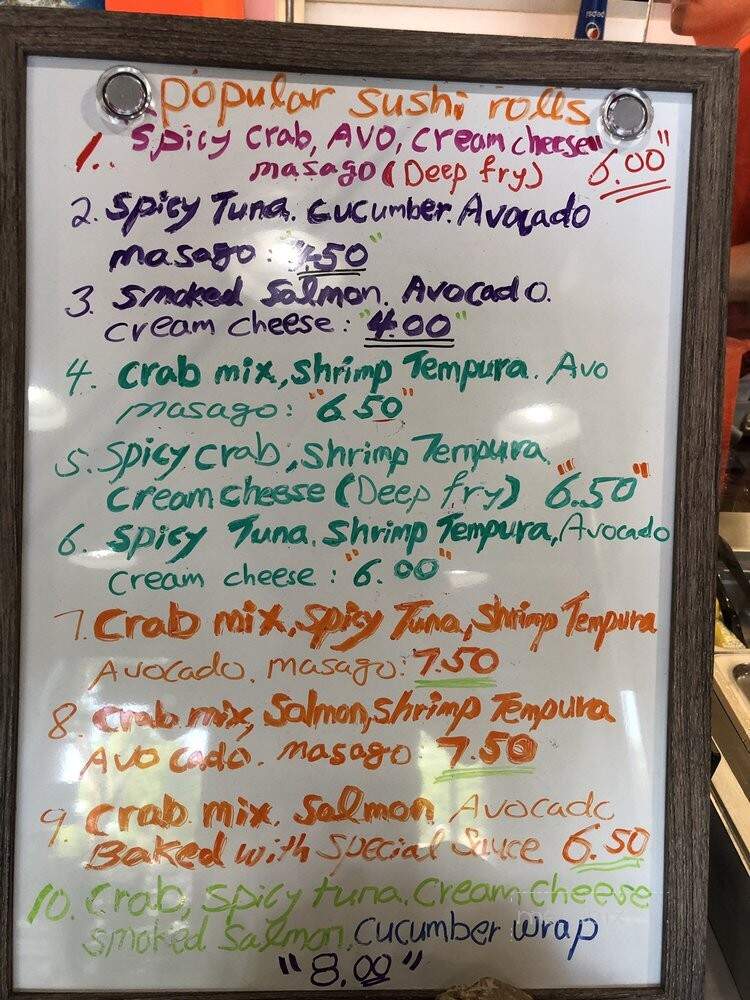 pepsi
popular sushi rolls
1.. Spicy crab, AVO, cream cheese
masago (Deep fry) "6.00"
2. Spicy Tuna. Cucumber. Avocado
masago: "4.50"
3. Smoked Salmon. Avocado.
cream cheese: "4.00"
4. Crab mix, shrimp Tempura. Avo
masago: "6.50"
5. Spicy crab, shrimp Tempura.
cream cheese (Deep fry) "6.50"
6. Spicy Tuna. Shrimp Tempura, Avocado
cream cheese: "6.00"
7. Crab mix, Spicy Tuna, Shrimp Tempura
Avocado. masago: 7.50
8. crab mix, Salmon, Shrimp Tempura
Avocado. masago: 7.50
9. Crab mix. Salmon Avocado
Baked with Special Sauce 6.50
10. Crab, spicy tuna. Cream cheese
smoked Salmon. Cucumber wrap
"8.00"